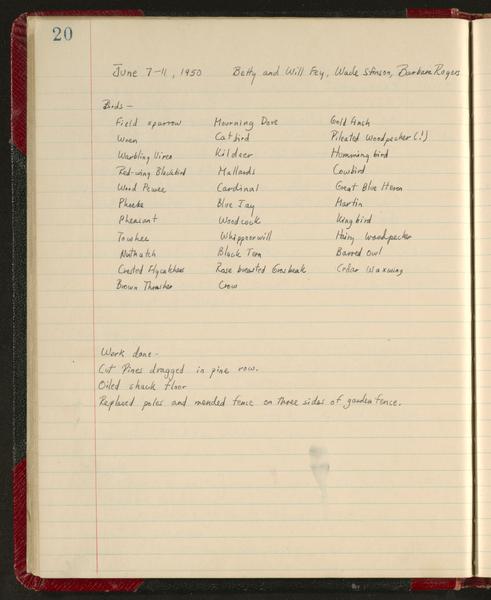 20
June 7-11, 1950 Betty and Will Fey, Wade Stinson, Barbara Rogers
Birds -
Field sparrow Mourning Dove Goldfinch
Wren Catbird Pileated Woodpecker (!)
Warbling Vireo Kildeer Hummingbird
Red-wing Blackbird Mallards Cowbird
Wood Pewee Cardinal Great Blue Heron
Phoebe Blue Jay Martin
Pheasant Woodcock Kingbird
Towhee Whippoorwill Hairy Woodpecker
Nuthatch Black Tern Barred Owl
Crested Flycatcher Rose breasted Grosbeak Cedar Waxwing
Brown Thrasher Crow
Work done -
Cut Pines dragged in pine row.
Oiled shack floor
Replaced poles and mended fence on three sides of garden fence.